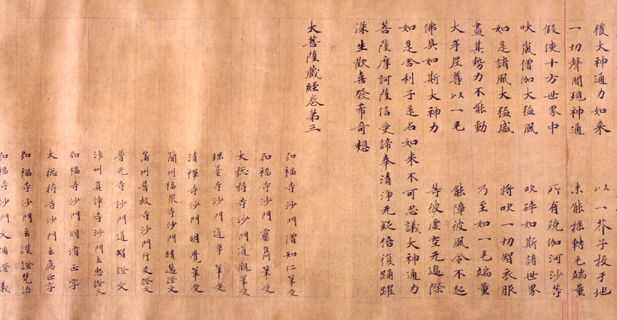 獲大神通力如来　以一芥子投于地
一切聲聞現神通　未能搖轉毛端量
假使十方世界中　所有殑伽河沙等
吠嵐僧伽大猛風　吹碎如斯諸世界
如是諸風大猛盛　將吹一切智衣服
盡其勢力不能動　乃至如一毛端量
大牟尼尊以一毛　能障彼風令不起
佛具如斯大神力　等彼虚空无邊際
如是舎利子是名如来不可思議大神通力
菩薩摩訶薩信受諦奉清淨无疑倍復踊躍
深生歡喜發希奇想
大菩薩藏經卷第三
弘福寺沙門知仁筆受
弘福寺沙門靈雋筆受
大揔持寺沙門道觀筆受
瑶臺寺沙門道卓筆受
清禪寺沙門明覺筆受
簡州福聚寺沙門靖邁證文
蒲州普救寺沙門行友證文
普光寺沙門道智證文
汴州真諦寺沙門玄忠證文
弘福寺沙門明濬正字
大揔持寺沙門玄應正字
弘福寺沙門玄謨證梵語
弘福寺沙門文備證義